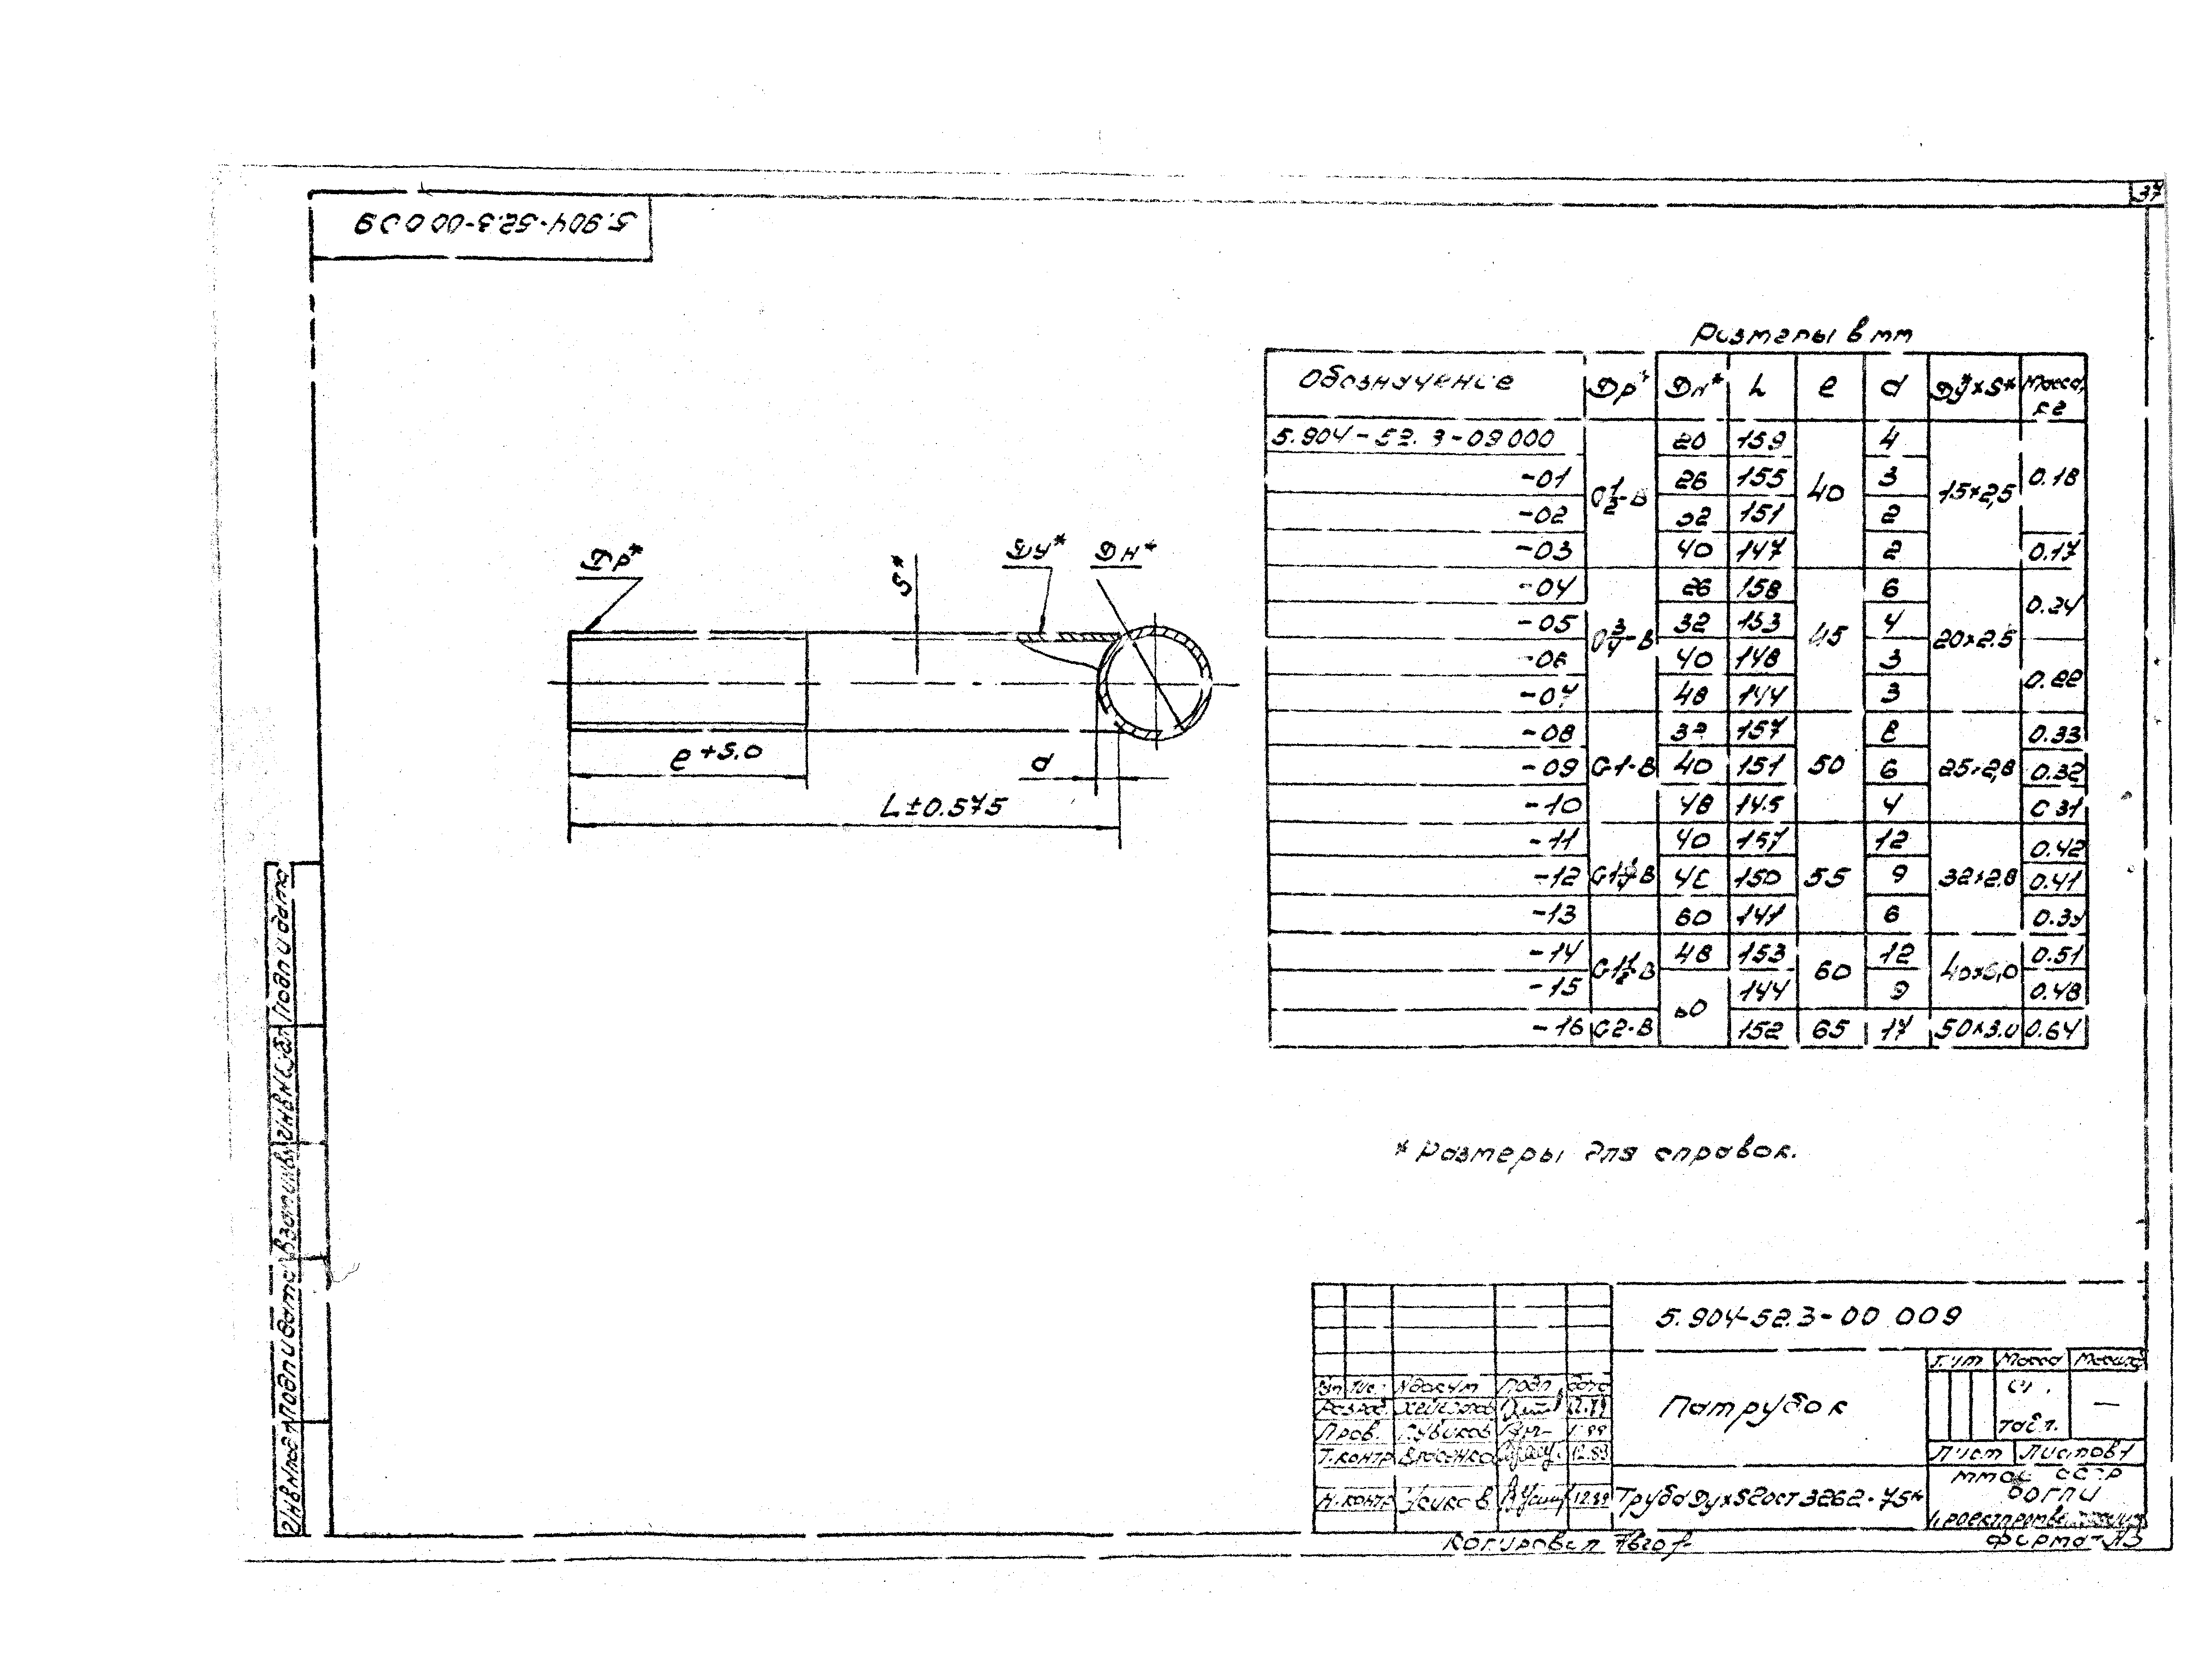 37
5.904-52.3-00 009
Размеры в мм
Обозначение Др* Дн* L ℓ d Ду*×S* Масса, кг
5.904-52.3-09000 G1/2-В 20 159 40 4 15×2,5 0.18
-01 26 155 3
-02 32 151 2
-03 40 147 2 0.17
-04 G3/4-В 26 158 45 6 20×2.5 0.24
-05 32 153 4
-06 40 148 3 0.22
-07 48 144 3
-08 G1-В 32 157 50 8 25×2,8 0.33
-09 40 151 6 0.32
-10 48 145 4 0.31
-11 G1 1/4-В 40 157 55 12 32×2.8 0.42
-12 48 150 9 0.41
-13 60 141 6
-14 G1 1/2-В 48 153 60 12 0.51
-15 60 144 9 0.48
-16 G2-В 152 65 17 50×3.0 0.64
Др*
S*
Ду*
Дн*
ℓ+5.0
d
L±0.575
* Размеры для справок.
Подп и дата
Взам инв №
Подп и дата
Инв № подл
5.904-52.3-00 009
Патрубок
Лит Масса Масштаб
См. табл. —
Лист Листов 1
Изм Лис. № докум Подп Дата
Разраб.
Пров.
Т.контр Власенко 12.89
Н.контр Усиков 12.89
Труба Ду×S ГОСТ 3262-75*
СССР
Копировал
Формат А3